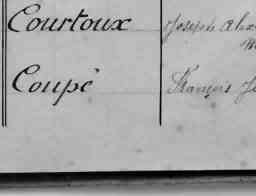 Courtoux Joseph Alex
Coupé François